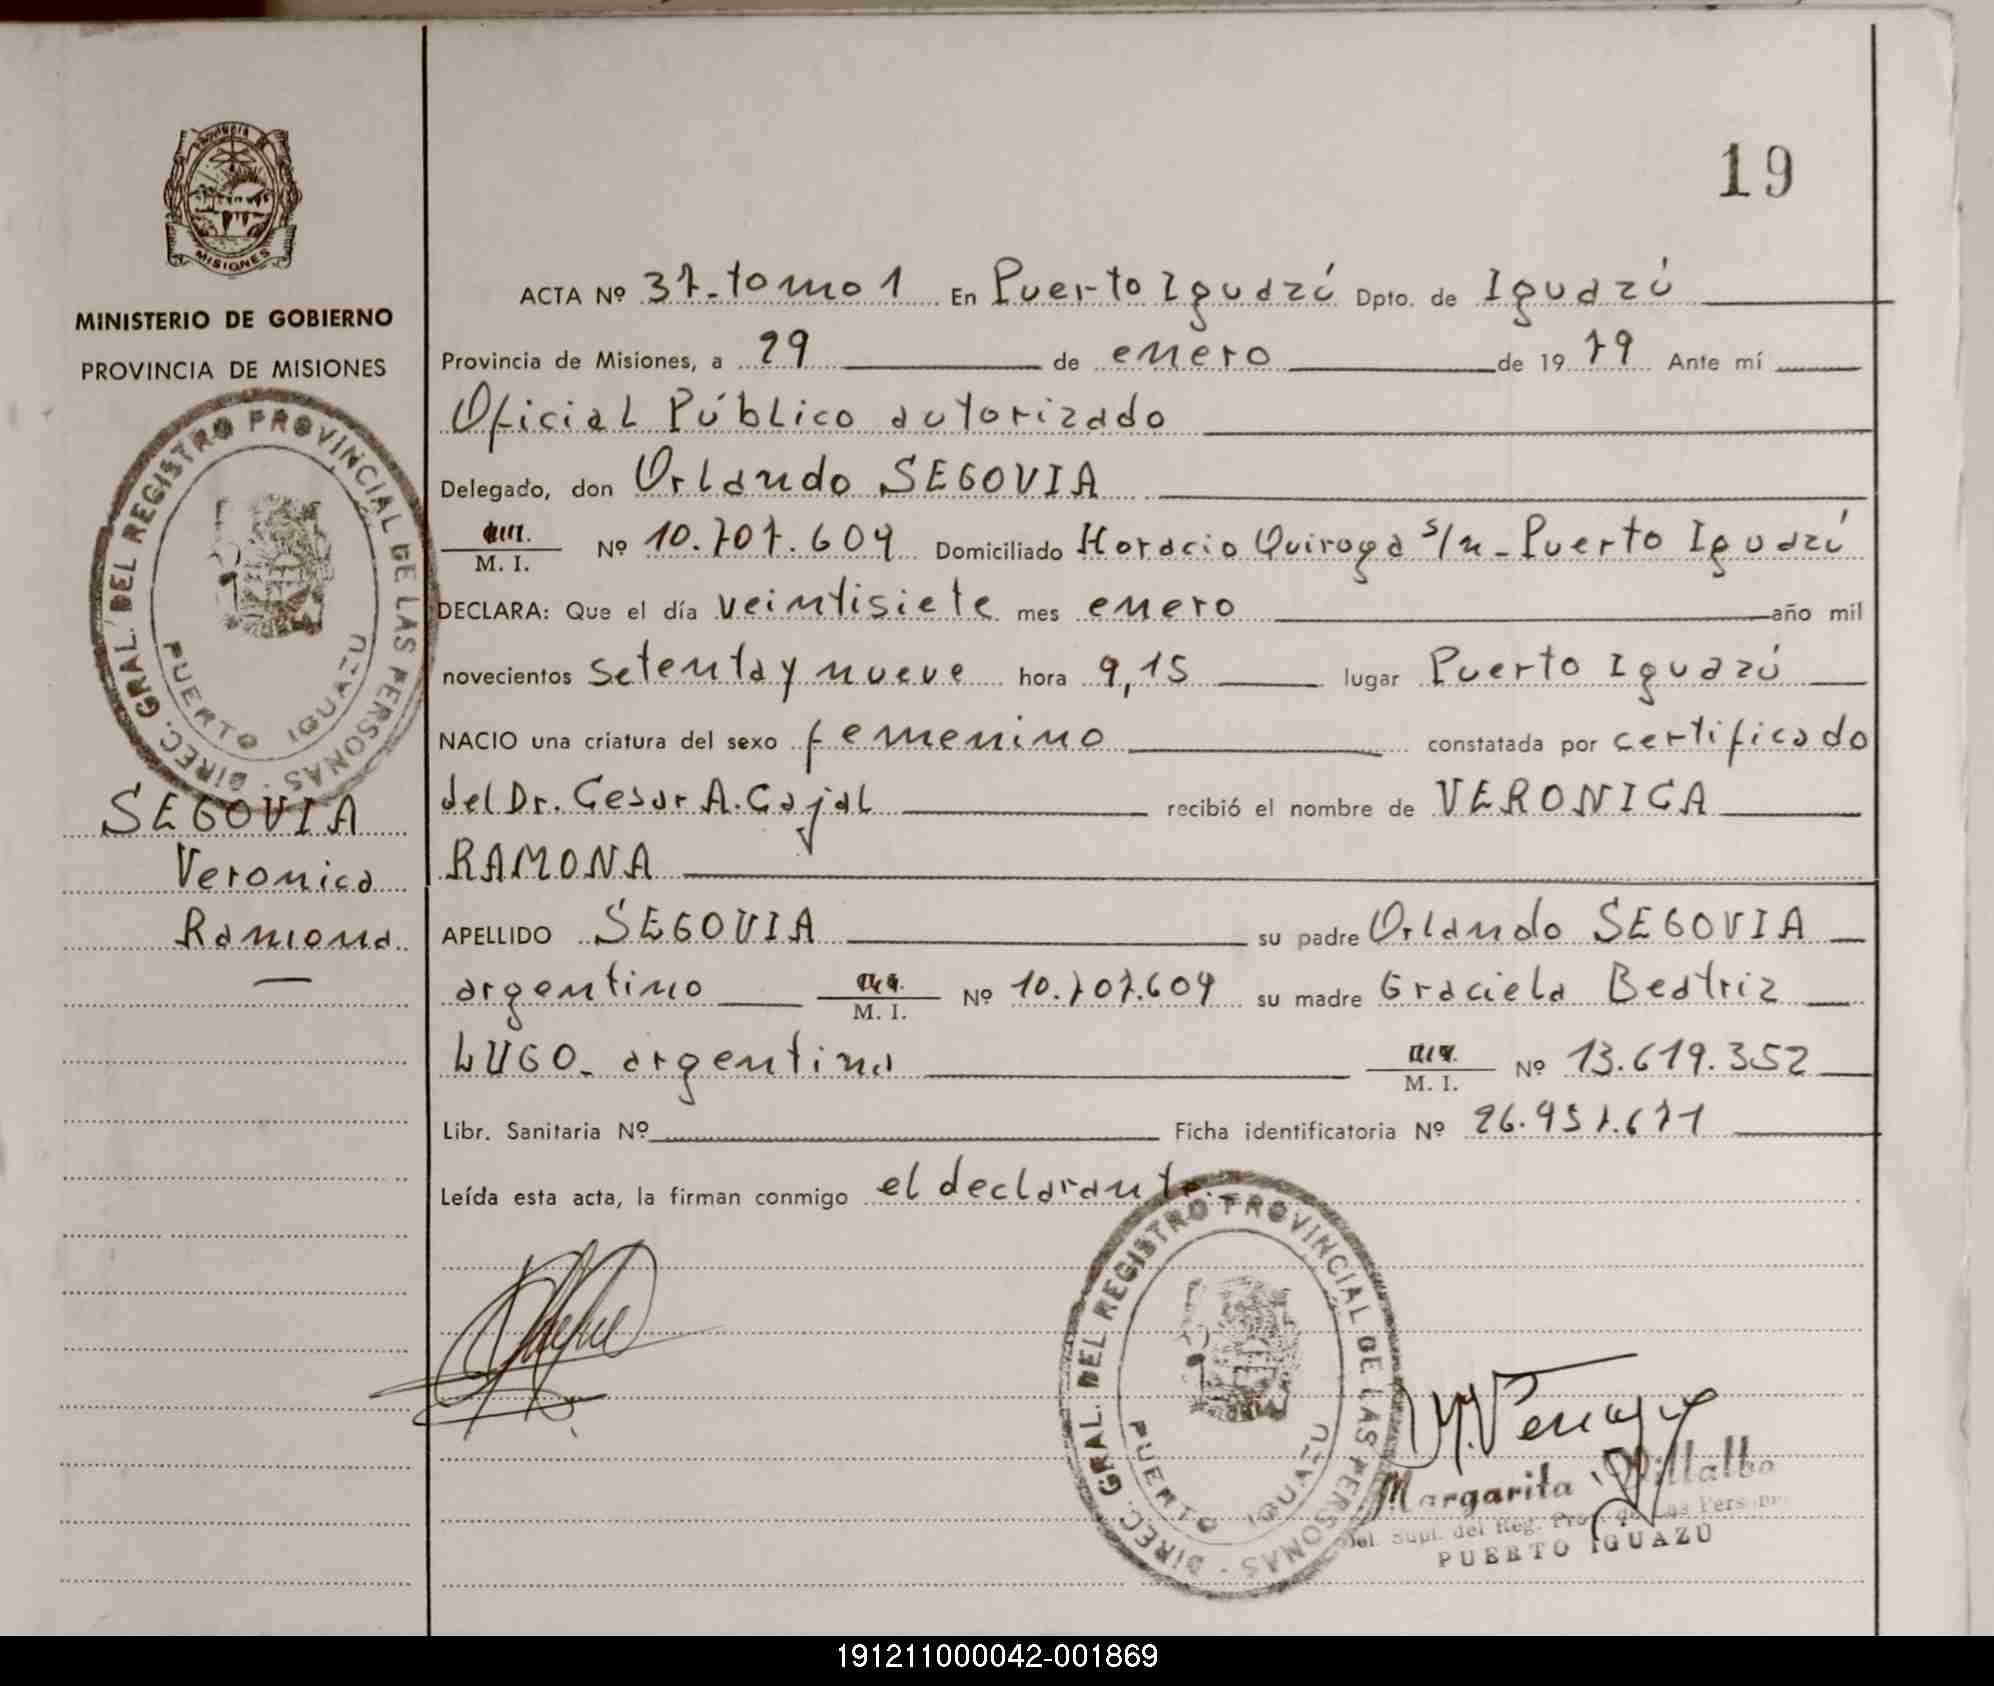 19
PROVINCIA
MISIONES
MINISTERIO DE GOBIERNO
PROVINCIA DE MISIONES
DIREC. GRAL. DEL REGISTRO PROVINCIAL DE LAS PERSONAS
PUERTO IGUAZU
SEGOVIA
Veronica
Ramona
ACTA Nº 37-tomo 1 En Puerto Iguazú Dpto. de Iguazú
Provincia de Misiones, a 29 de enero de 1979 Ante mí
Oficial Público autorizado
Delegado, don Orlando SEGOVIA
M. I. Nº 10.707.609 Domiciliado Horacio Quiroga s/n - Puerto Iguazú
DECLARA: Que el día veintisiete mes enero año mil
novecientos setenta y nueve hora 9,15 lugar Puerto Iguazú
NACIO una criatura del sexo femenino constatada por certificado
del Dr. Cesar A. Cajal recibió el nombre de VERONICA
RAMONA
APELLIDO SEGOVIA su padre Orlando SEGOVIA
argentino M. I. Nº 10.707.609 su madre Graciela Beatriz
LUGO - argentina M. I. Nº 13.619.352
Libr. Sanitaria Nº Ficha identificatoria Nº 26.957.671
Leída esta acta, la firman conmigo el declarante.-
DIREC. GRAL. DEL REGISTRO PROVINCIAL DE LAS PERSONAS
PUERTO IGUAZU
Margarita Villalba
Del. Supl. del Reg. Prov. de las Personas
PUERTO IGUAZÚ
191211000042-001869